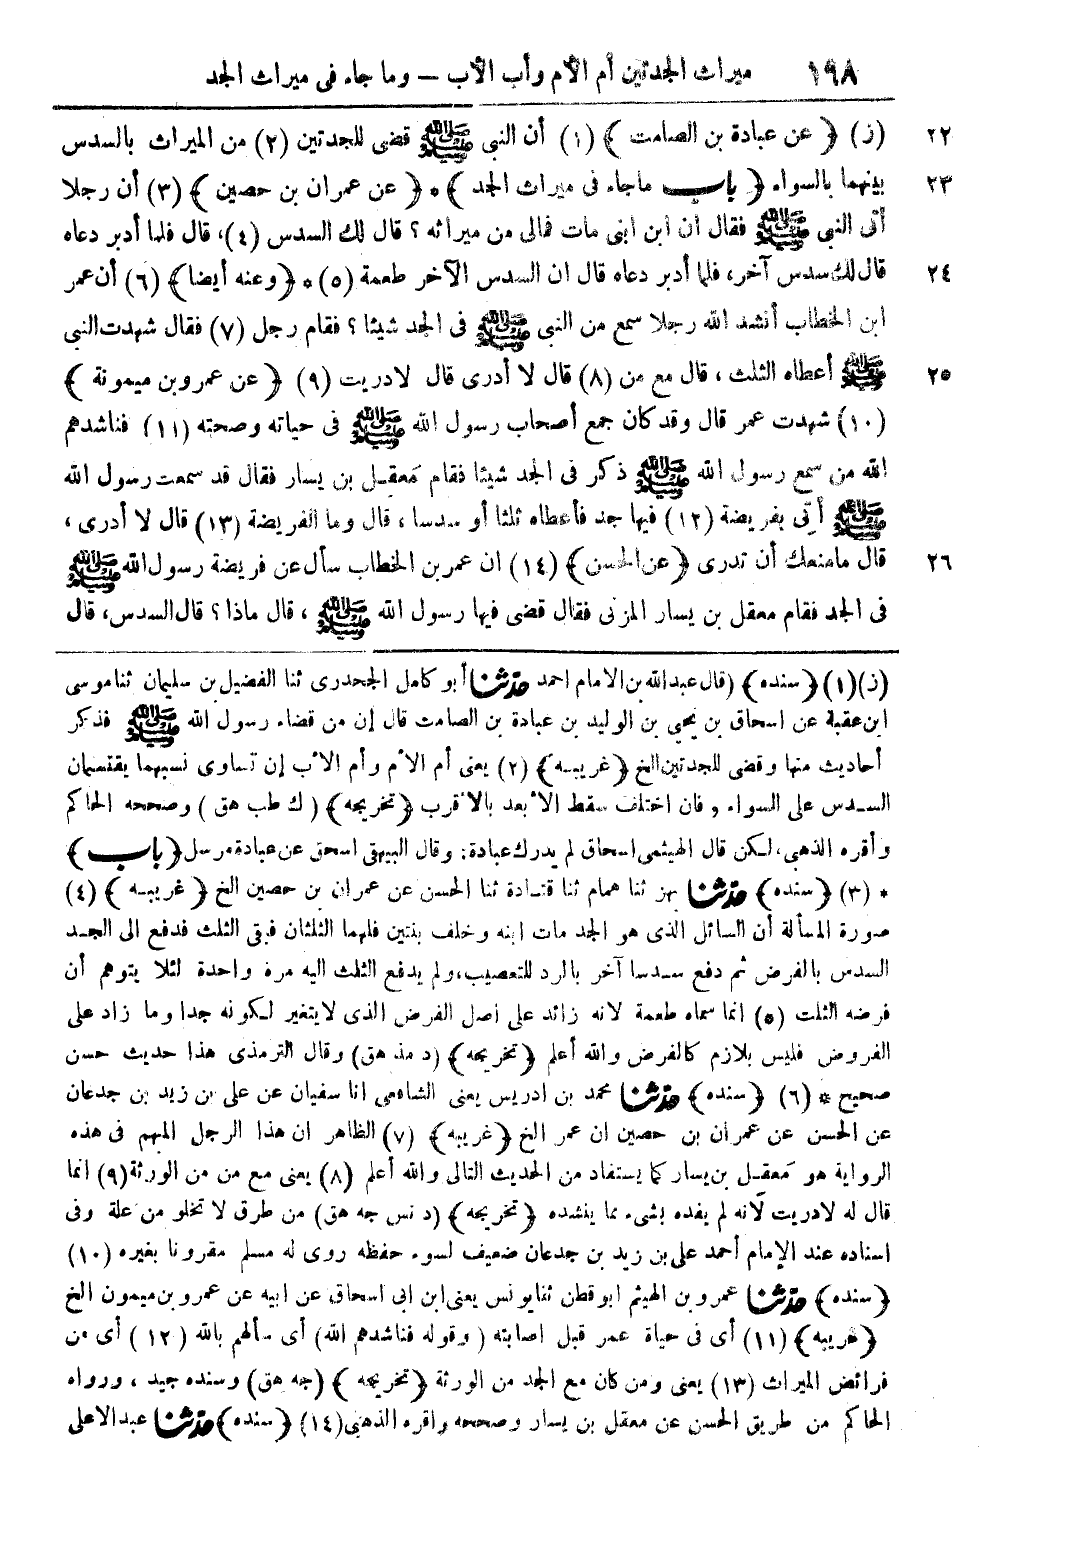 ١٩٨ ميراث الجدتين أم الأم وأب الأب — وما جاء فى ميراث الجد
٢٢ (ز) ﴿ عن عبادة بن الصامت ﴾ (١) أن النبى ﷺ قضى للجدتين (٢) من الميراث بالسدس
٢٣ بينهما بالسواء ﴿ باب ماجاء فى ميراث الجد ﴾ * ﴿ عن عمران بن حصين ﴾ (٣) أن رجلا
أتى النبى ﷺ فقال ان ابن ابنى مات فمالى من ميراثه ؟ قال لك السدس (٤)، قال فلما أدبر دعاه
٢٤ قال لك سدس آخر، فلما أدبر دعاه قال ان السدس الآخر طعمة (٥) * ﴿وعنه أيضا﴾ (٦) أن عمر
ابن الخطاب أنشد الله رجلا سمع من النبى ﷺ فى الجد شيئا ؟ فقام رجل (٧) فقال شهدت النبى
٢٥ ﷺ أعطاه الثلث ، قال مع من (٨) قال لا أدرى قال لادريت (٩) ﴿ عن عمرو بن ميمونة ﴾
(١٠) شهدت عمر قال وقد كان جمع أصحاب رسول الله ﷺ فى حياته وصحته (١١) فناشدهم
الله من سمع رسول الله ﷺ ذكر فى الجد شيئا فقام مَعقل بن يسار فقال قد سمعت رسول الله
ﷺ أتى بفريضة (١٢) فيها جد فأعطاه ثلثا أو سدسا ، قال وما الفريضة (١٣) قال لا أدرى ،
٢٦ قال مامنعك أن تدرى ﴿عن الحسن﴾ (١٤) ان عمر بن الخطاب سأل عن فريضة رسول الله ﷺ
فى الجد فقام معقل بن يسار المزنى فقال قضى فيها رسول الله ﷺ ، قال ماذا ؟ قال السدس، قال
(ز)(١)﴿سنده﴾ (قال عبدالله بن الامام احمد حدثنا أبو كامل الجحدرى ثنا الفضيل بن سليمان ثنا موسى
ابن عقبة عن اسحاق بن يحيى بن الوليد بن عبادة بن الصامت قال إن من قضاء رسول الله ﷺ فذكر
أحاديث منها وقضى للجدتين الخ ﴿غريبه﴾ (٢) يعنى أم الأم وأم الأب إن تساوى نسبهما يقتسمان
السدس على السواء ، فان اختلف سقط الأبعد بالأقرب ﴿تخريجه﴾ ( ك طب هق ) وصححه الحاكم
وأقره الذهبى، لكن قال الهيثمى اسحاق لم يدرك عبادة: وقال البيهقى اسحق عن عبادة مرسل ﴿باب﴾
* (٣) ﴿سنده﴾ حدثنا بهز ثنا همام ثنا قتادة ثنا الحسن عن عمران بن حصين الخ ﴿ غريبه ﴾ (٤)
صورة المسألة أن السائل الذى هو الجد مات ابنه وخلف بنتين فلهما الثلثان فبقى الثلث فدفع الى الجد
السدس بالفرض ثم دفع سدسا آخر بالرد للتعصيب، ولم يدفع الثلث اليه مرة واحدة لئلا يتوهم أن
فرضه الثلث (٥) انما سماه طعمة لانه زائد على أصل الفرض الذى لايتغير لكونه جدا وما زاد على
الفروض فليس بلازم كالفرض والله أعلم ﴿تخريجه﴾ (د مذ هق) وقال الترمذى هذا حديث حسن
صحيح * (٦) ﴿سنده﴾ حدثنا محمد بن ادريس يعنى الشافعى انا سفيان عن على بن زيد بن جدعان
عن الحسن عن عمران بن حصين ان عمر الخ ﴿غريبه﴾ (٧) الظاهر ان هذا الرجل المبهم فى هذه
الرواية هو مَعقل بن يسار كما يستفاد من الحديث التالى والله أعلم (٨) يعنى مع من من الورثة (٩) انما
قال له لادريت لأنه لم يفده بشىء مما ينشده ﴿تخريجه﴾ (د نس جه هق) من طرق لا تخلو من علة وفى
اسناده عند الإمام أحمد على بن زيد بن جدعان ضعيف لسوء حفظه روى له مسلم مقرونا بغيره (١٠)
﴿سنده﴾ حدثنا عمرو بن الهيثم ابو قطن ثنا يونس يعنى ابن ابى اسحاق عن ابيه عن عمرو بن ميمون الخ
﴿غريبه﴾ (١١) أى فى حياة عمر قبل اصابته ( وقوله فناشدهم الله) أى سألهم بالله (١٢ ) أى من
فرائض الميراث (١٣) يعنى ومن كان مع الجد من الورثة ﴿تخريجه ﴾ (جه هق) وسنده جيد ، ورواه
الحاكم من طريق الحسن عن معقل بن يسار وصححه واقره الذهبى (١٤) ﴿سنده﴾ حدثنا عبد الاعلى